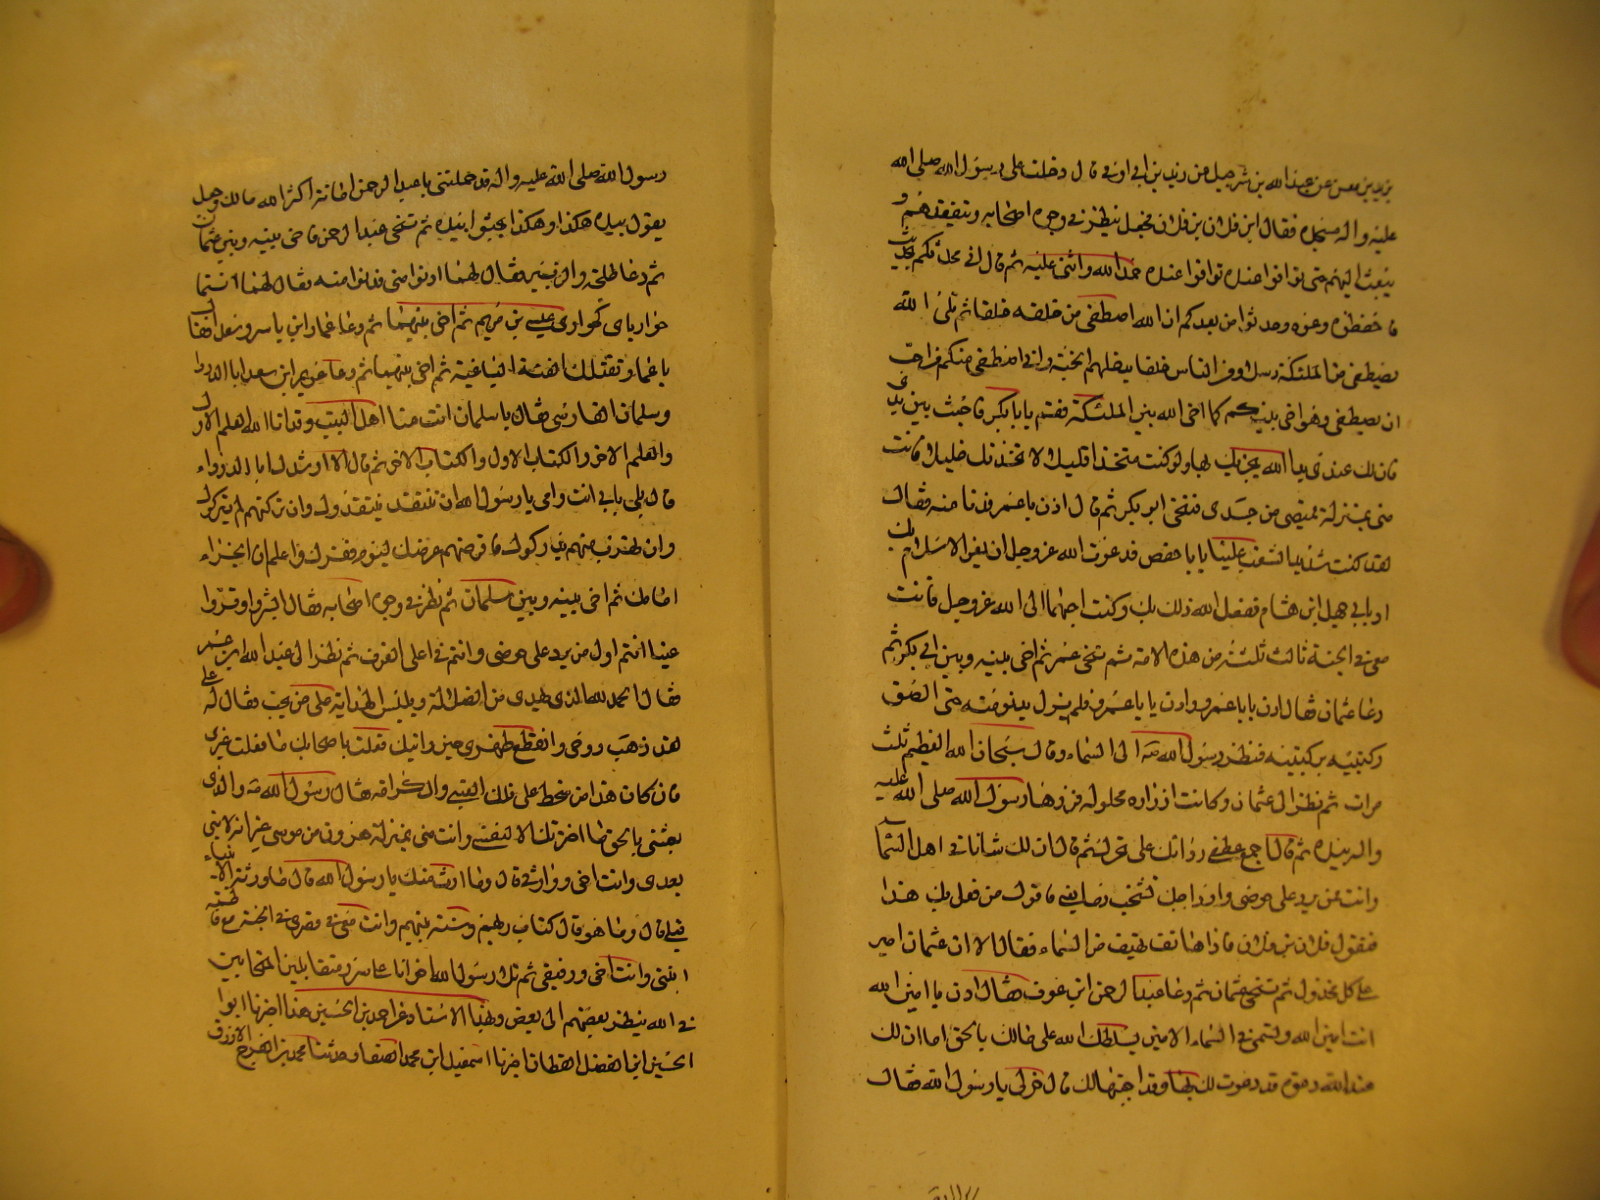 يزيد بن معن عن عبد الله بن شرحبيل عن زيد بن ابي اوفى قال دخلت على رسول الله صلى الله
عليه واله مسجده فقال اين فلان بن فلان فجعل ينظر في وجوه اصحابه ويتفقدهم و
يبعث اليهم حتى توافوا عنده توافوا عنده حمد الله واثنى عليه ثم قال اني محدثكم بحديث
فاحفظوه وعوه وحدثوا من بعدكم ان الله اصطفى من خلقه خلقا ثم تلى الله
يصطفي من الملئكة رسلا ومن الناس خلقا يدخلهم الجنة واني اصطفى منكم من احب
ان يصطفى وهو اخي بينكم كما اخى الله بين الملئكة فقم يا بابكر فاجث بين يدي
فان لك عندي يدا الله يجزيك بها ولو كنت متخذا خليلا لاتخذتك خليلا فانت
مني بمنزلة قميصي من جسدي فتنحى ابو بكر ثم قال ادن يا عمر فدنا منه فقال
لقد كنت شديد الشغب علينا يابا حفص فدعوت الله عز وجل ان يعز الاسلام بك
او بابي جهل ابن هشام ففعل الله ذلك بك وكنت احبهما الى الله عز وجل فانت
معي في الجنة ثالث ثلثة من هذه الامة ثم تنحى عمر ثم اخى بينه وبين ابي بكر ثم
دعا عثمان فقال ادن يابا عمرو ادن يابا عمرو فلم يزل يدنو منه حتى الصق
ركبتيه بركبتيه فنظر رسول الله صه الى السماء وقال سبحان الله العظيم ثلث
مرات ثم نظر الى عثمان وكانت ازراره محلولة فزرها رسول الله صلى الله عليه
واله بيده ثم قال اجمع عطفي ردائك على نحرك ثم قال ان لك شانا في اهل السماء
وانت ممن يرد على حوضي واوداجك تشخب دما فاقول من فعل بك هذا
فتقول فلان بن فلان فاذا هاتف يهتف من السماء فقال الا ان عثمان امير
على كل مخذول ثم تنحى عثمان ثم دعا عبد الرحمن ابن عوف فقال ادن يا امين الله
انت امين الله وتسمى في السماء الامين يسلطك الله على مالك بالحق اما ان لك
عند الله دعوة قد دعوت لك بها وقد اجبتها لك قال خر لي يا رسول الله فقال
رسول الله صلى الله عليه واله قد حملتني يا عبد الرحمن امانة اكثر الله مالك وجعل
يقول بيده هكذا وهكذا يحثوا بيده ثم تنحى عبد الرحمن فاخى بينه وبين عثمان
ثم دعا طلحة والزبير فقال لهما ادنوا مني فدنوا منه فقال لهما انتما
حواريي كحواري عيسى بن مريم ثم اخى بينهما ثم دعا عمار ابن ياسر وسعدا فقال
يا عمار تقتلك الفئة الباغية ثم اخى بينهما ثم دعا عويمر ابن سعد ابا الدرداء
وسلمان الفارسي فقال يا سلمان انت منا اهل البيت وقد اتاك الله العلم الاول
والعلم الاخر والكتاب الاول والكتاب الاخر ثم قال الا ارشدك ابا الدرداء
قال بلى بابي انت وامي يا رسول الله ان تنتقد ينتقدوك وان تركتهم لم يتركوك
وان تهرب منهم يدركوك فاقرضهم عرضك ليوم فقرك واعلم ان الجزاء
امامك ثم اخى بينه وبين سلمان ثم نظر في وجوه اصحابه فقال ابشروا وقروا
عينا انتم اول من يرد على حوضي وانتم في اعلى الغرف ثم نظر الى عبد الله ابن عمر
فقال الحمد لله الذي يهدي من الضلالة ويلبس الهداية على من يحب فقال له علي
لقد ذهب روحي وانقطع ظهري حين رايتك فعلت باصحابك ما فعلت غيري
فان كان هذا من سخط علي فلك العتبى والكرامة فقال رسول الله صه والذي
بعثني بالحق ما اخرتك الا لنفسي وانت مني بمنزلة هرون من موسى غير انه لا نبي
بعدي وانت اخي ووارثي قال وما ارث منك يا رسول الله قال ما ورثه الانبياء
قبلي قال وما هو قال كتاب ربهم وسنة نبيهم وانت معي في قصري في الجنة مع فاطمة
ابنتي وانت اخي ورفيقي ثم تلا رسول الله اخوانا على سرر متقابلين المتحابين
في الله ينظر بعضهم الى بعض وبهذا الاسناد عن احمد بن الحسين هذا اخبرنا ابوا
الحسين ابن الفضل القطان اخبرنا اسمعيل ابن محمد الصفار حدثنا محمد بن الفرج الازرق